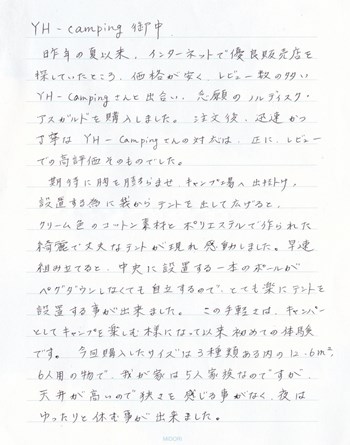 YH-camping 御中
昨年の夏以来、インターネットで優良販売店を
探していたところ、価格が安く、レビュー数の多い
YH-Campingさんと出合い、念願のノルディスク・
アスガルドを購入しました。注文後、迅速かつ
丁寧な YH-Campingさんの対応は、正に、レビュー
での高評価そのものでした。
期待に胸を膨らませ、キャンプ場へ出掛け、
設置する為に袋からテントを出して広げると、
クリーム色のコットン素材とポリエステルで作られた
綺麗で丈夫なテントが現れ感動しました。早速
組み立てると、中央に設置する一本のポールが
ペグダウンしなくても自立するので、とても楽にテントを
設置する事が出来ました。この手軽さは、キャンパー
としてキャンプを楽しむ様になって以来初めての体験
です。今回購入したサイズは3種類ある内の12.6m²、
6人用の物で、我が家は5人家族なのですが、
天井が高いので狭さを感じる事がなく、夜は
ゆったりと休む事が出来ました。
MIDORI